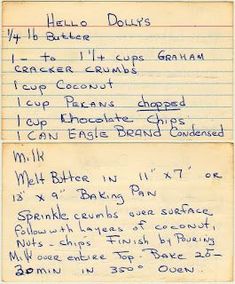 HELLO DOLLYS
1/4 lb Butter
1 - to 1 1/4 cups GRAHAM
CRACKER CRUMBS
1 cup Coconut
1 cup PECANS chopped
1 cup Chocolate Chips
1 CAN EAGLE BRAND Condensed
Milk
Melt Butter in 11" x 7" or
13" x 9" Baking Pan
Sprinkle crumbs over surface
Follow with Layers of coconut,
Nuts - chips Finish by Pouring
Milk over entire Top. Bake 25-
30 min in 350° Oven.